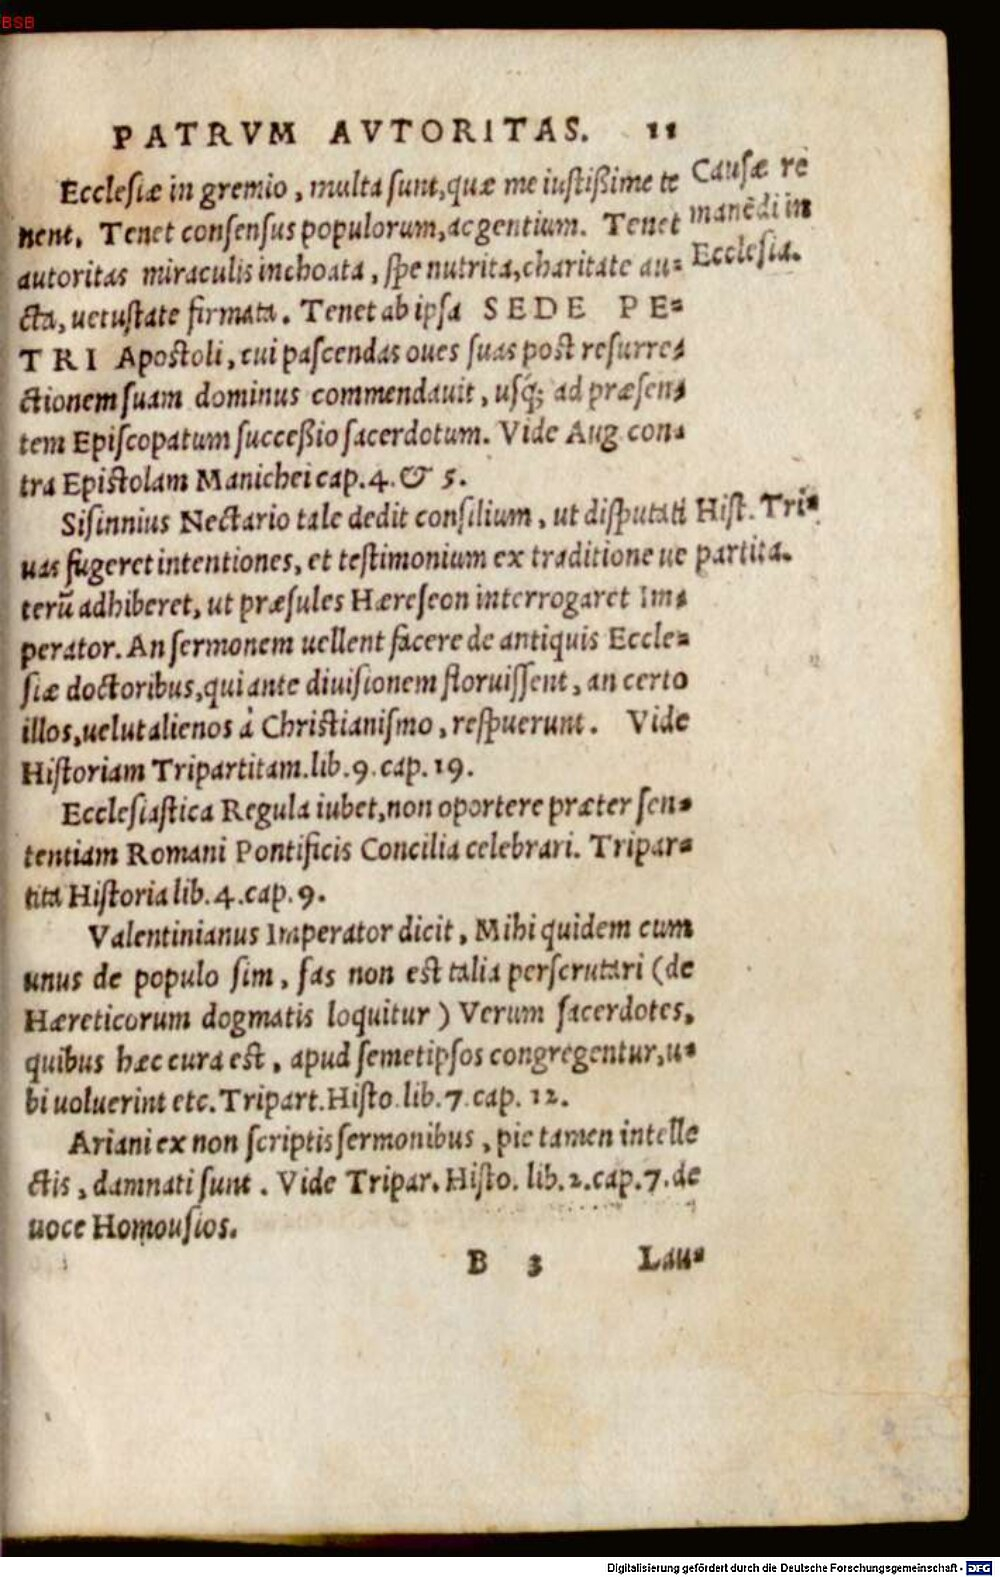 BSB
PATRVM AVTORITAS. 11
Ecclesiæ in gremio, multa sunt, quæ me iustißime te
nent. Tenet consensus populorum, ac gentium. Tenet
autoritas miraculis inchoata, spe nutrita, charitate au-
cta, uetustate firmata. Tenet ab ipsa SEDE PE-
TRI Apostoli, cui pascendas oues suas post resurre-
ctionem suam dominus commendauit, usq; ad præsen-
tem Episcopatum succeßio sacerdotum. Vide Aug con-
tra Epistolam Manichei cap. 4. & 5.
Causæ re
manẽdi in
Ecclesia.
Sisinnius Nectario tale dedit consilium, ut disputati
uas fugeret intentiones, et testimonium ex traditione ue
terũ adhiberet, ut præsules Hæreseon interrogaret Im-
perator. An sermonem uellent facere de antiquis Eccle-
siæ doctoribus, qui ante diuisionem floruissent, an certo
illos, uelut alienos à Christianismo, respuerunt. Vide
Historiam Tripartitam. lib. 9. cap. 19.
Hist. Tri-
partita.
Ecclesiastica Regula iubet, non oportere præter sen-
tentiam Romani Pontificis Concilia celebrari. Tripar-
tita Historia lib. 4. cap. 9.
Valentinianus Imperator dicit, Mihi quidem cum
unus de populo sim, fas non est talia perscrutari (de
Hæreticorum dogmatis loquitur) Verum sacerdotes,
quibus hæc cura est, apud semetipsos congregentur, u-
bi uoluerint etc. Tripart. Histo. lib. 7. cap. 12.
Ariani ex non scriptis sermonibus, pie tamen intelle
ctis, damnati sunt. Vide Tripar. Histo. lib. 2. cap. 7. de
uoce Homousios.
B 3 Lau-
Digitalisierung gefördert durch die Deutsche Forschungsgemeinschaft - DFG